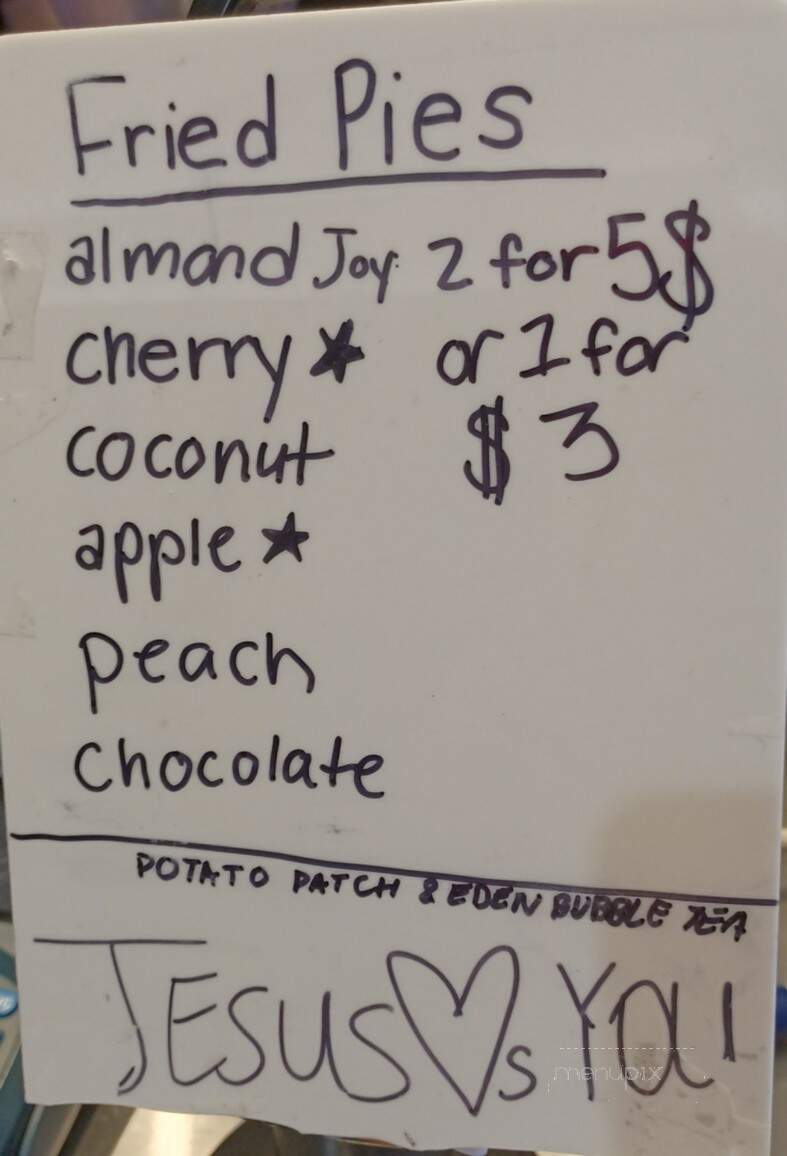 Fried Pies
almond Joy 2 for 5$
cherry★ or 1 for
coconut $3
apple★
peach
chocolate
POTATO PATCH & EDEN BUBBLE TEA
JESUS♡s YOU
menupix